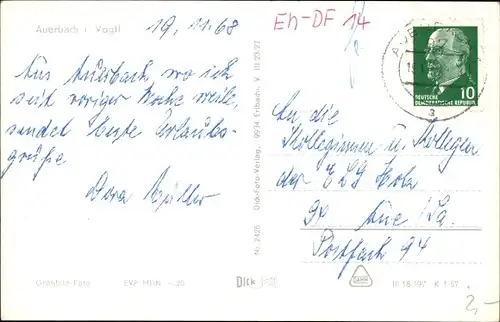 Auerbach i. Vogtl
19.11.68
Aus Auerbach, wo ich
seit voriger Woche weile,
sendet beste Urlaubs-
grüße
Dora Müller
Echtbild-Foto
EVP MDN -.20
Nr. 2426 Dick-Foto-Verlag, 9934 Erlbach, V III 23-27
Dick
Eh-DF 14
AUERBACH
DEUTSCHE
DEMOKRATISCHE REPUBLIK
10
a
An die
Kolleginnen u. Kollegen
der ELG Holz
9x Aue/Sa.
Postfach 94
III 18 197 K 1/67
2,-